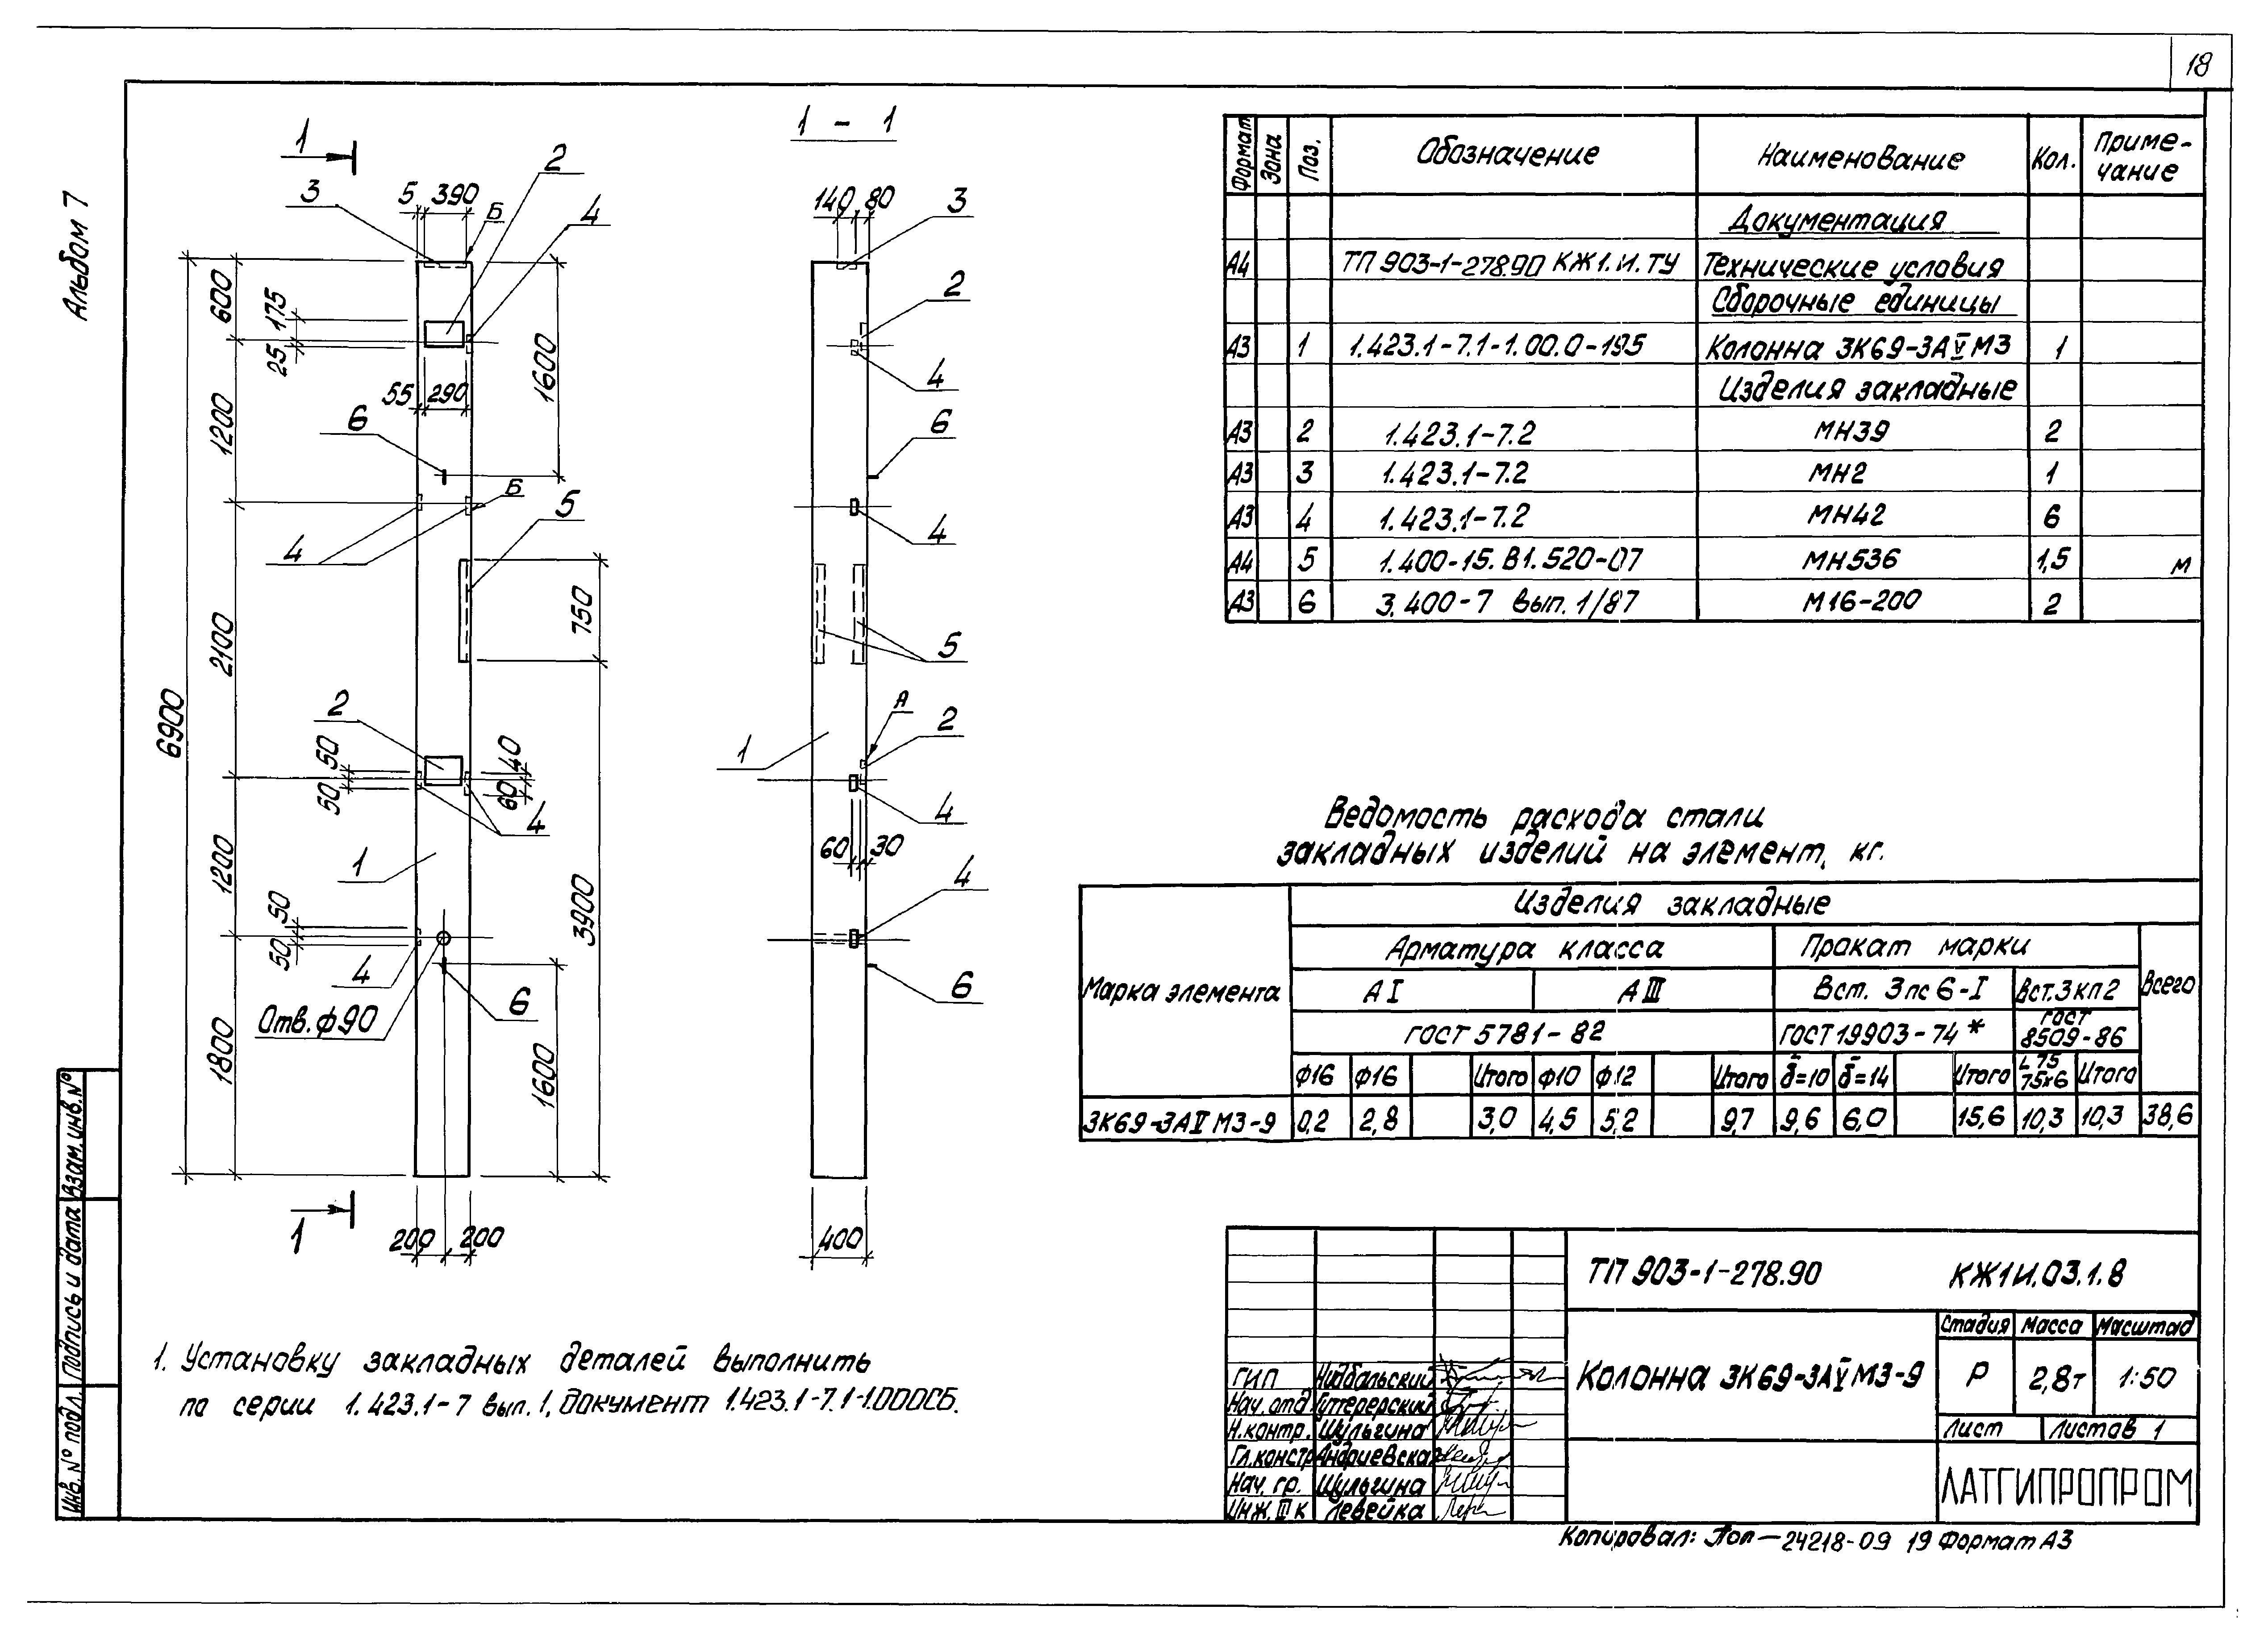 18
Альбом 7
1
1 - 1
2
3
5 390
Б
4
600
175
25
1600
55 290
1200
6
Б
5
4
2100
750
6900
2
50
50
40
60
4
1200
1
50
50
4
3900
Отв. ф90
6
1800
1600
1
200 200
140 80
3
2
4
6
4
5
А
2
1
4
60 30
4
6
400
Формат Зона Поз. Обозначение Наименование Кол. Приме-
чание
Документация
А4 ТП 903-1-278.90 КЖ1.И.ТУ Технические условия
Сборочные единицы
А3 1 1.423.1-7.1-1.00.0-195 Колонна 3К69-3АV М3 1
Изделия закладные
А3 2 1.423.1-7.2 МН39 2
А3 3 1.423.1-7.2 МН2 1
А3 4 1.423.1-7.2 МН42 6
А4 5 1.400-15.В1.520-07 МН536 1,5 м
А3 6 3.400-7 вып.1/87 М16-200 2
Ведомость расхода стали
закладных изделий на элемент, кг.
Марка элемента
Изделия закладные
Арматура класса Прокат марки Всего
А I А III Вст. 3пс 6-I Вст.3кп2
ГОСТ 5781-82 ГОСТ 19903-74* ГОСТ 8509-86
ф16 ф16 Итого ф10 ф12 Итого δ=10 δ=14 Итого L 75 75х6 Итого
3К69-3АV М3-9 0,2 2,8 3,0 4,5 5,2 9,7 9,6 6,0 15,6 10,3 10,3 38,6
1. Установку закладных деталей выполнить
по серии 1.423.1-7 вып.1, документ 1.423.1-7.1-1.000СБ.
ТП 903-1-278.90 КЖ1И.03.1.8
Колонна 3К69-3АV М3-9
Стадия Масса Масштаб
Р 2,8т 1:50
Лист Листов 1
ЛАТГИПРОПРОМ
ГИП Нидбальский
Нач. отд Гуттерерский
Н.контр. Шульгина
Гл.констр Андриевская
Нач. гр. Шульгина
Инж. III к Левейка
Инв. № подл. Подпись и дата Взам.инв.№
Копировал: 24218-09 19 Формат А3